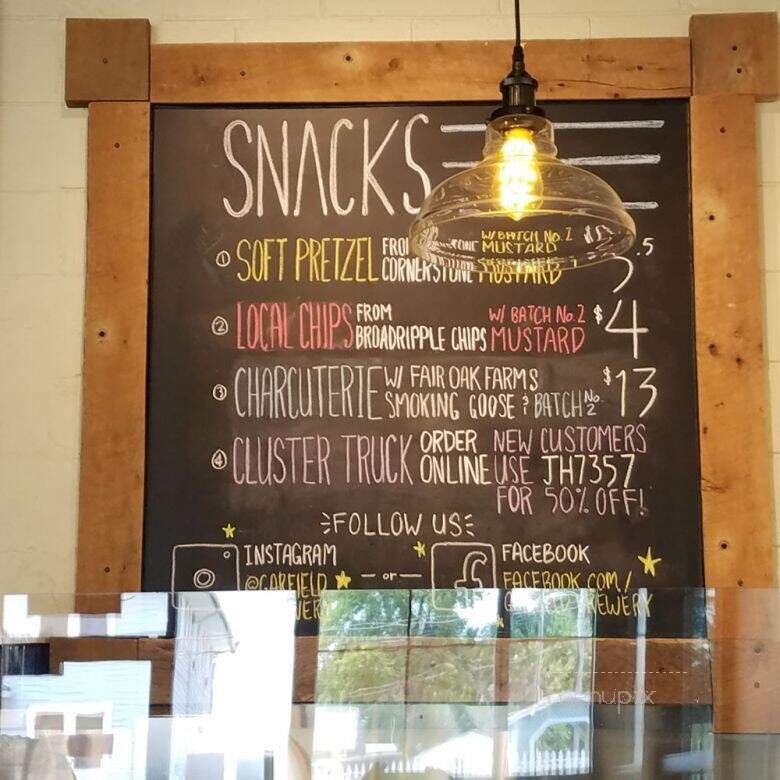 SNACKS
① SOFT PRETZEL FROM CORNERSTONE W/ BATCH No. 2 MUSTARD .5
② LOCAL CHIPS FROM BROADRIPPLE CHIPS W/ BATCH No. 2 MUSTARD $4
③ CHARCUTERIE W/ FAIR OAK FARMS SMOKING GOOSE & BATCH No. 2 $13
④ CLUSTER TRUCK ORDER ONLINE NEW CUSTOMERS USE JH7357 FOR 50% OFF!
FOLLOW US
INSTAGRAM
@GARFIELD
— or —
FACEBOOK
FACEBOOK.COM/